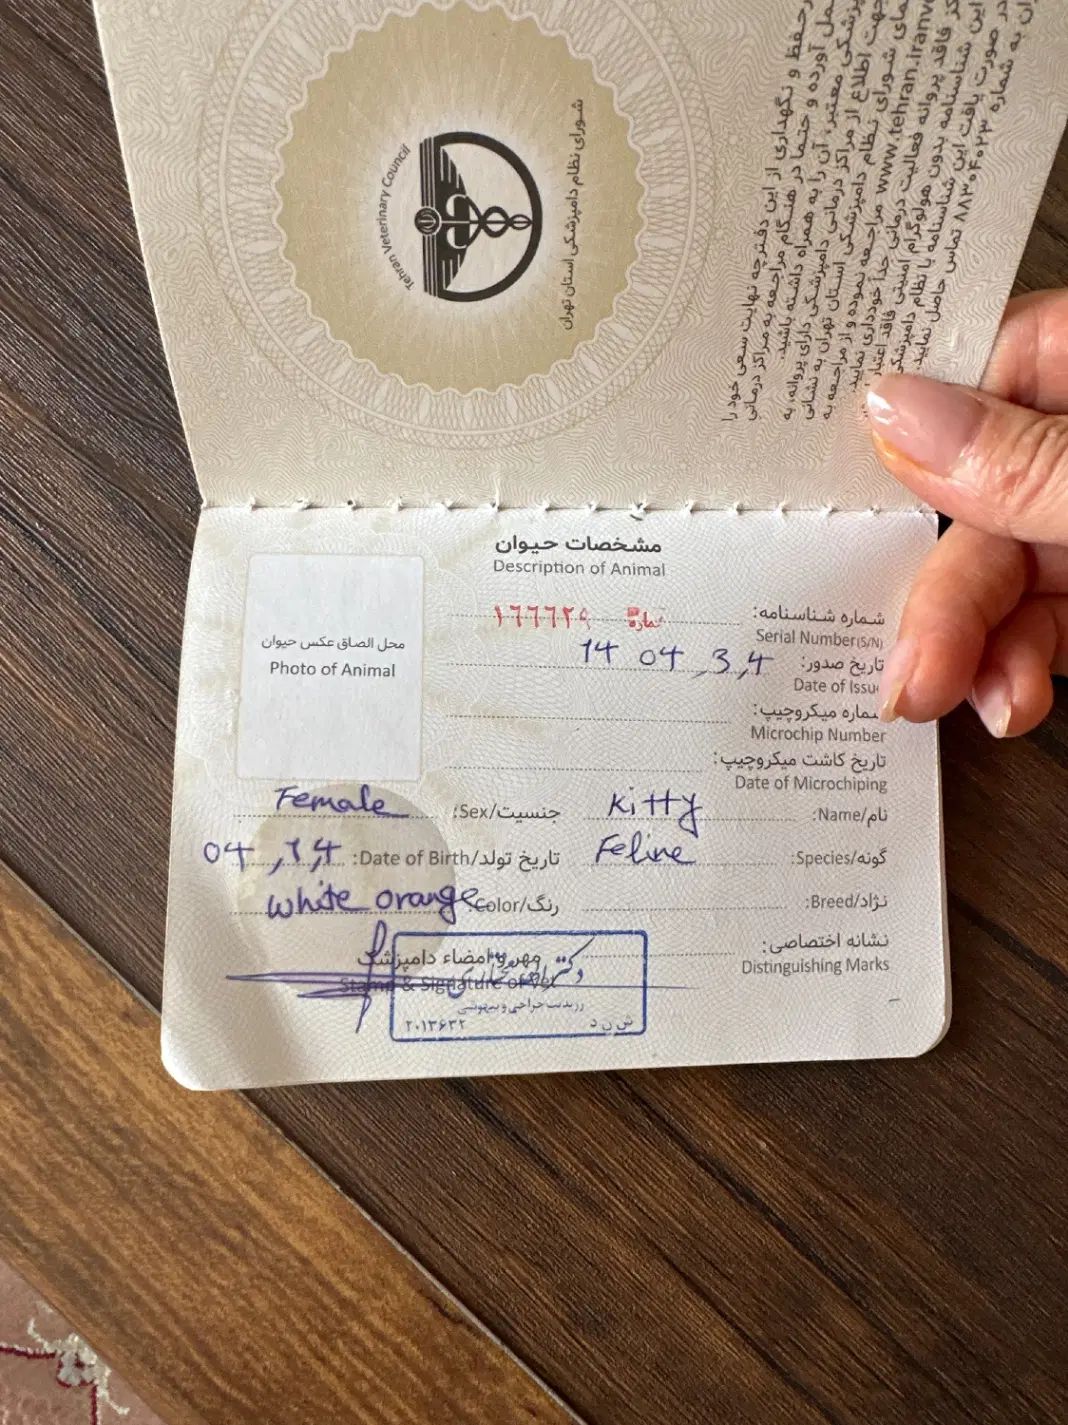 Tehran Veterinary Council
شورای نظام دامپزشکی استان تهران
در حفظ و نگهداری از این دفترچه نهایت سعی خود را
مراجعه به مراکز درمانی
دامپزشکی دارای پروانه، به
شورای نظام دامپزشکی استان تهران به نشانی
www.tehran.iranv مراجعه نموده و از مراجعه به
فاقد پروانه فعالیت درمانی جداً خودداری نمایید.
این شناسنامه بدون هولوگرام امنیتی فاقد اعتبار
در صورت یافت این شناسنامه با نظام دامپزشکی
به شماره ۸۸۳۰۴۰۲۳ تماس حاصل نمایید.
مشخصات حیوان
Description of Animal
محل الصاق عکس حیوان
Photo of Animal
شماره شناسنامه: شماره
Serial Number(S/N)
تاریخ صدور: 14 04
Date of Issu
شماره میکروچیپ:
Microchip Number
تاریخ کاشت میکروچیپ:
Date of Microchiping
نام/Name: Kitty
جنسیت/Sex: Female
گونه/Species: Feline
تاریخ تولد/Date of Birth: 04
نژاد/Breed:
رنگ/Color: white orange
نشانه اختصاصی:
Distinguishing Marks
مهر و امضاء دامپزشک
Stamp & Signature of Vet
دکتر
رزیدنت جراحی و بیهوشی
ش ن د ۲۰۱۳۶۳۲